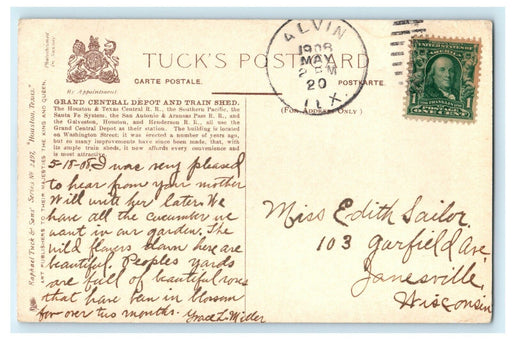 ALVIN
1908
MAY
2 PM
20
TEX.
UNITED STATES OF AMERICA
FRANKLIN
1
ONE CENT
TUCK'S POSTCARD
CARTE POSTALE.
POSTKARTE.
By Appointment
(For Address Only)
GRAND CENTRAL DEPOT AND TRAIN SHED.
The Houston & Texas Central R. R., the Southern Pacific, the
Santa Fe System, the San Antonio & Aransas Pass R. R., and
the Galveston, Houston, and Henderson R. R., all use the
Grand Central Depot as their station. The building is located
on Washington Street; it was erected a number of years ago,
but so many improvements have since been made, that, with
its ample train sheds, it now affords every convenience and
is most attractive.
5-18-08 I was very pleased
to hear from your mother
Will write her later. We
have all the cucumber we
want in our garden. The
wild flowers down here are
beautiful. Peoples yards
are full of beautiful roses
that have been in blossom
for over two months. Grace L. Miller
Miss Edith Sailor
103 Garfield Ave.
Janesville,
Wisconsin
Raphael Tuck & Sons' Series No. 2497, "Houston, Texas."
ART PUBLISHERS TO THEIR MAJESTIES THE KING AND QUEEN.